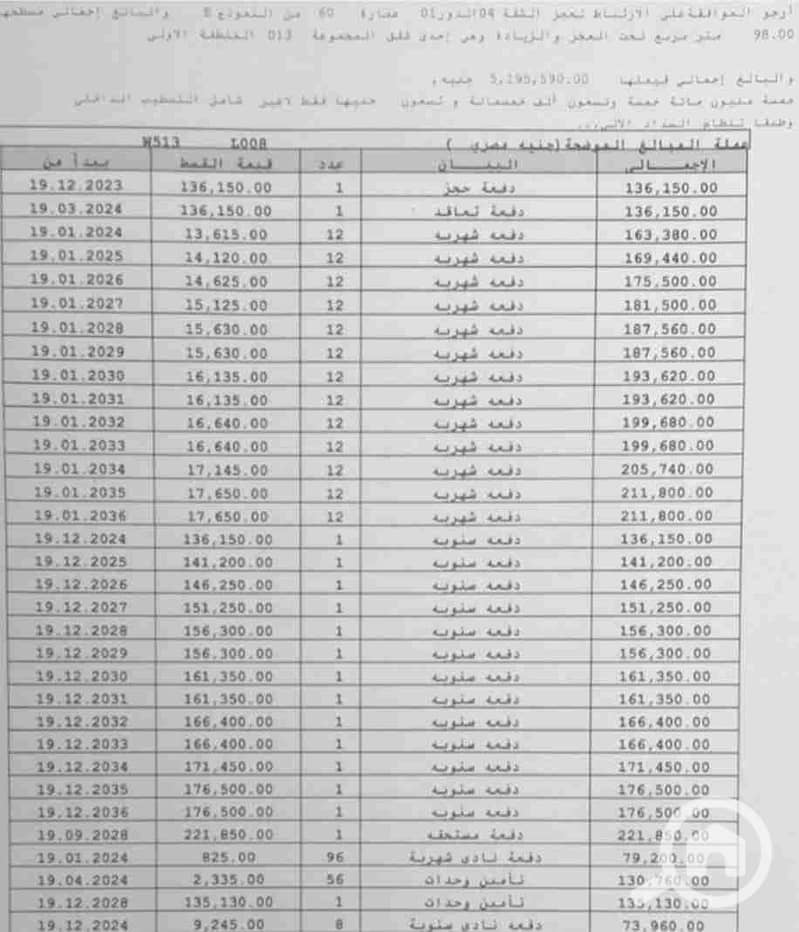 أرجو الموافقة على الارتباط بحجز الشقة 04 الدور 01 عمارة 60 من النموذج E والبالغ إجمالي مسطحها
98.00 متر مربع تحت العجز والزيادة وهي إحدى شقق المجموعة 013 المنطقة الأولى
والبالغ إجمالي قيمتها 5,195,590.00 جنيه,
خمسة مليون مائة خمسة وتسعون ألف خمسمائة و تسعون جنيها فقط لاغير شامل التشطيب الداخلي
وطبقا لنظام السداد الآتي...
عملة المبالغ الموضحة (جنيه مصري ) L008 W513
الإجمـــالي البيـــان عدد قيمة القسط يبدأ من
136,150.00 دفعة حجز 1 136,150.00 19.12.2023
136,150.00 دفعة تعاقد 1 136,150.00 19.03.2024
163,380.00 دفعه شهريه 12 13,615.00 19.01.2024
169,440.00 دفعه شهريه 12 14,120.00 19.01.2025
175,500.00 دفعه شهريه 12 14,625.00 19.01.2026
181,500.00 دفعه شهريه 12 15,125.00 19.01.2027
187,560.00 دفعه شهريه 12 15,630.00 19.01.2028
187,560.00 دفعه شهريه 12 15,630.00 19.01.2029
193,620.00 دفعه شهريه 12 16,135.00 19.01.2030
193,620.00 دفعه شهريه 12 16,135.00 19.01.2031
199,680.00 دفعه شهريه 12 16,640.00 19.01.2032
199,680.00 دفعه شهريه 12 16,640.00 19.01.2033
205,740.00 دفعه شهريه 12 17,145.00 19.01.2034
211,800.00 دفعه شهريه 12 17,650.00 19.01.2035
211,800.00 دفعه شهريه 12 17,650.00 19.01.2036
136,150.00 دفعه سنويه 1 136,150.00 19.12.2024
141,200.00 دفعه سنويه 1 141,200.00 19.12.2025
146,250.00 دفعه سنويه 1 146,250.00 19.12.2026
151,250.00 دفعه سنويه 1 151,250.00 19.12.2027
156,300.00 دفعه سنويه 1 156,300.00 19.12.2028
156,300.00 دفعه سنويه 1 156,300.00 19.12.2029
161,350.00 دفعه سنويه 1 161,350.00 19.12.2030
161,350.00 دفعه سنويه 1 161,350.00 19.12.2031
166,400.00 دفعه سنويه 1 166,400.00 19.12.2032
166,400.00 دفعه سنويه 1 166,400.00 19.12.2033
171,450.00 دفعه سنويه 1 171,450.00 19.12.2034
176,500.00 دفعه سنويه 1 176,500.00 19.12.2035
176,500.00 دفعه سنويه 1 176,500.00 19.12.2036
221,850.00 دفعة مستحقه 1 221,850.00 19.09.2028
79,200.00 دفعة نادى شهرية 96 825.00 19.01.2024
130,760.00 تأمين وحدات 56 2,335.00 19.04.2024
135,130.00 تأمين وحدات 1 135,130.00 19.12.2028
73,960.00 دفعه نادى سنوية 8 9,245.00 19.12.2024